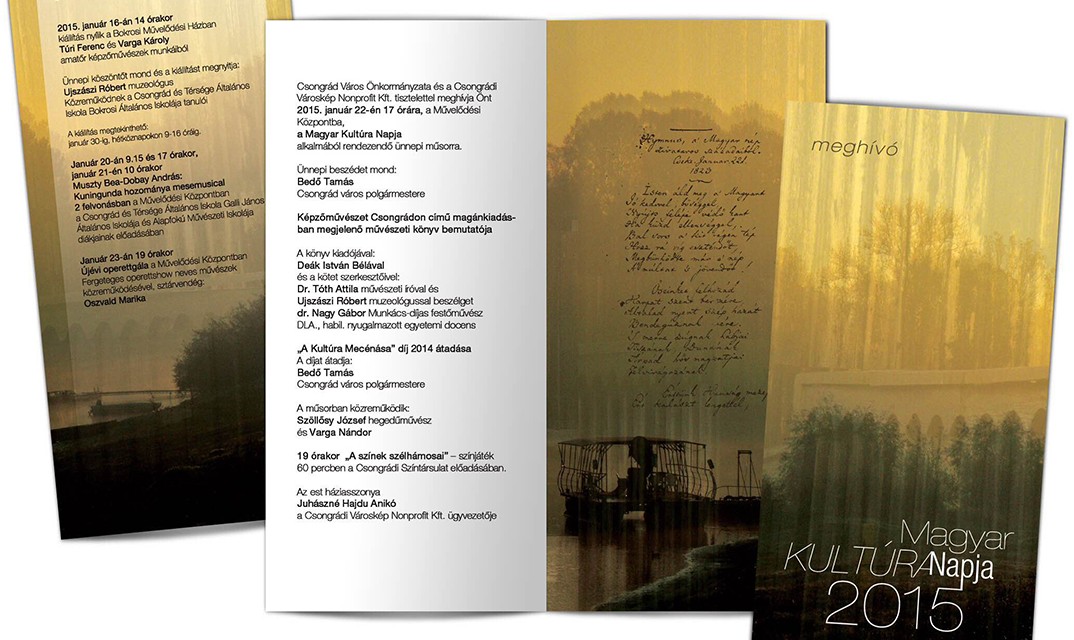 2015. január 16-án 14 órakor
kiállítás nyílik a Bokrosi Művelődési Házban
Túri Ferenc és Varga Károly
amatőr képzőművészek munkáiból
Ünnepi köszöntőt mond és a kiállítást megnyitja:
Ujszászi Róbert muzeológus
Közreműködnek a Csongrád és Térsége Általános
Iskola Bokrosi Általános Iskolája tanulói
A kiállítás megtekinthető:
január 30-ig, hétköznapokon 9-16 óráig.
Január 20-án 9.15 és 17 órakor,
január 21-én 10 órakor
Muszty Bea-Dobay András:
Kuningunda hozománya mesemusical
2 felvonásban a Művelődési Központban
a Csongrád és Térsége Általános Iskola Galli János
Általános Iskolája és Alapfokú Művészeti Iskolája
diákjainak előadásában
Január 23-án 19 órakor
Újévi operettgála a Művelődési Központban
Fergeteges operettshow neves művészek
közreműködésével, sztárvendég:
Oszvald Marika
Csongrád Város Önkormányzata és a Csongrádi
Városkép Nonprofit Kft. tisztelettel meghívja Önt
2015. január 22-én 17 órára, a Művelődési
Központba,
a Magyar Kultúra Napja
alkalmából rendezendő ünnepi műsorra.
Ünnepi beszédet mond:
Bedő Tamás
Csongrád város polgármestere
Képzőművészet Csongrádon című magánkiadás-
ban megjelenő művészeti könyv bemutatója
A könyv kiadójával:
Deák István Bélával
és a kötet szerkesztőivel:
Dr. Tóth Attila művészeti íróval és
Ujszászi Róbert muzeológussal beszélget
dr. Nagy Gábor Munkács-díjas festőművész
DLA., habil. nyugalmazott egyetemi docens
„A Kultúra Mecénása” díj 2014 átadása
A díjat átadja:
Bedő Tamás
Csongrád város polgármestere
A műsorban közreműködik:
Szöllősy József hegedűművész
és Varga Nándor
19 órakor „A színek szélhámosai” – színjáték
60 percben a Csongrádi Színtársulat előadásában.
Az est háziasszonya
Juhászné Hajdu Anikó
a Csongrádi Városkép Nonprofit Kft. ügyvezetője
Hymnus, a Magyar nép
zivataros századaiból.
1823
Isten áldd meg a Magyart
meghívó
Magyar
KULTÚRA Napja
2015